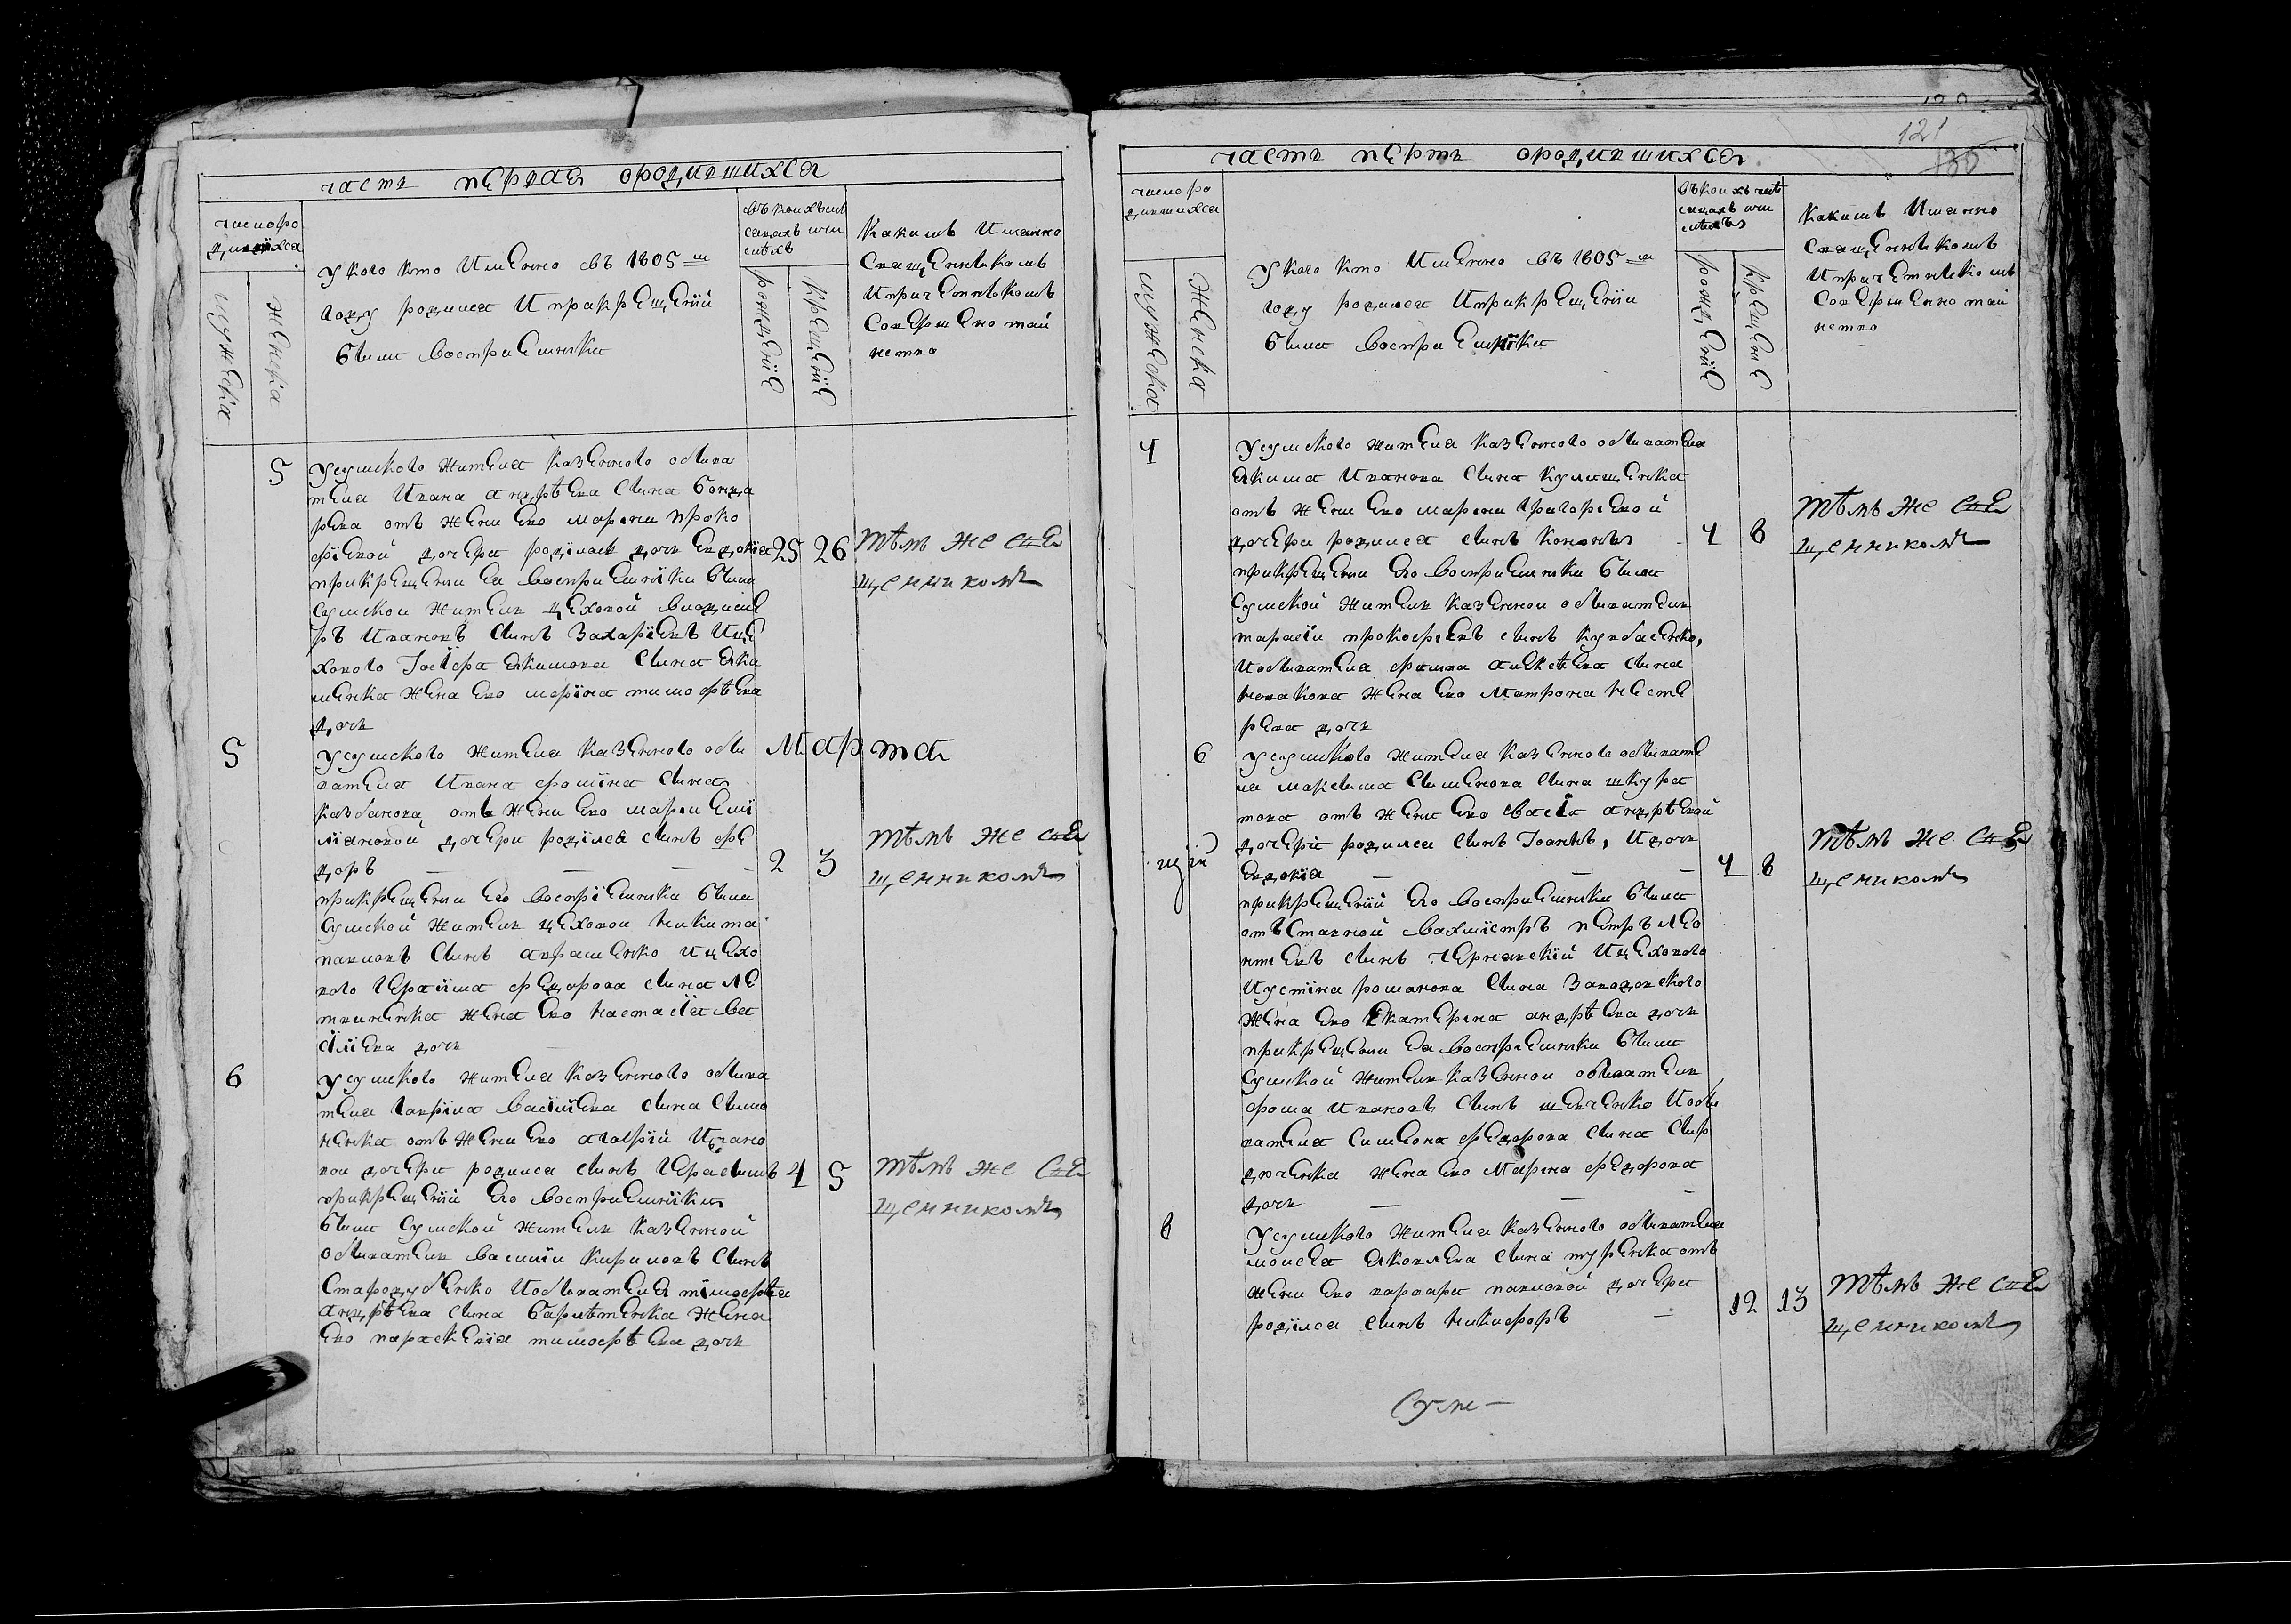 часть первая ородившихся
число ро
дившихся
мужеска
женска
у кого кто Имѣнно въ 1805 м
году родился И прикрещеніи
были восприемники
въ коихъ мѣ
сяцахъ или
числахъ
рожденіе
крещеніе
Какимъ Именно
Священникомъ
И причетникомъ
Совершено таи
нство
5
Усумского жителя казенного обыва
теля Ивана андрѣева сына бонда
рева отъ жены его марфы проко
фіевой дочери родилась дочь евдокія 25 26
прикрещеніи ея восприемники были
сумской житель цеховой владиме
ръ Ивановъ сынъ Захарѣевъ И це
хового Іосіфа якимова сына яки
менка жена его марфа тимофѣева
дочь
тѣмъ же свя
щенникомъ
Марта
5
усумского жителя казенного обы
вателя Ивана фомина сына
казбанова, отъ жены его марфы еми
ліановой дочери родился сынъ фе
доръ — — — 2 3
прикрещеніи его восприемники были
сумской житель цеховой никита
павловъ сынъ авраменко И цехо
вого герасима федорова сына ли
твиненка жена его настасія ва
силіева дочь —
тѣмъ же свя
щенникомъ
6
усумского жителя казенного обыва
теля гавріила василіева сына сима
ненка отъ жены его агафіи Ивано
вои дочери родился сынъ герасимъ 4 5
прикрещеніи его восприемники
были сумской житель казенной
обыватель василіи кириловъ сынъ
Стародубенко И обывателя тимофѣя
андрѣева сына барлѣтенка жена
его параскевія тимофѣева дочь
тѣмъ же свя
щенникомъ
121
130
часть перть ородившихся
число ро
дившихся
мужеска
женска
у кого кто Имѣнно въ 1805 м
году родился И прикрещеніи
были восприемники
въ коихъ мѣ
сяцахъ или
числахъ
рожденіе
крещеніе
Какимъ Именно
Священникомъ
И причетникомъ
Совершено таи
нство
7
усумского жителя казенного обывателя
якима Иванова сына кулишенка
отъ жены его марфы григорьевой
дочери родился сынъ кононъ 7 8
прикрещеніи его восприемники были
сумской житель казенной обыватель
тарасіи прокофьевъ сынъ кумбасенко,
И обывателя фомы алексѣева сына
новакова жена его матрона несте
рева дочь
тѣмъ же свя
щенникомъ
6
усумского жителя казенного обывате
ля максима симѣонова сына шкура
това отъ жены его васса андрѣевой
дочери родился сынъ Іоаннъ, И дочь
евдокія — — — 7 8
прикрещеніи его восприемники были
отъставной вахмистръ петръ лео
нтіевъ сынъ чернявскій И цехового
Иустіна романова сына Заводовского
жена его екатерина андрѣева дочь
прикрещеніи ея восприемники были
сумской житель казенной обыватель
фома Ивановъ сынъ шевченко И обы
вателя симеона федорова сына сир
дюченка жена его марфа федорова
дочь — — —
тѣмъ же свя
щенникомъ
8
усумского жителя казенного обывателя
моисея яковлева сына туренка отъ
жены его варвары павловой дочери
родился сынъ никифоръ — 12 13
тѣмъ же свя
щенникомъ